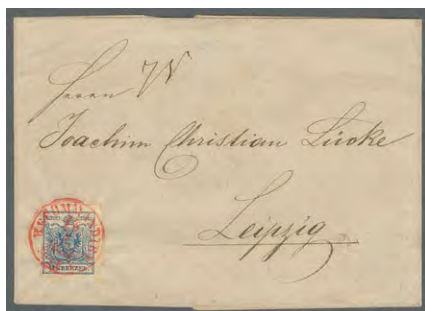 Herrn
Joachim Christian Lücke
Leipzig